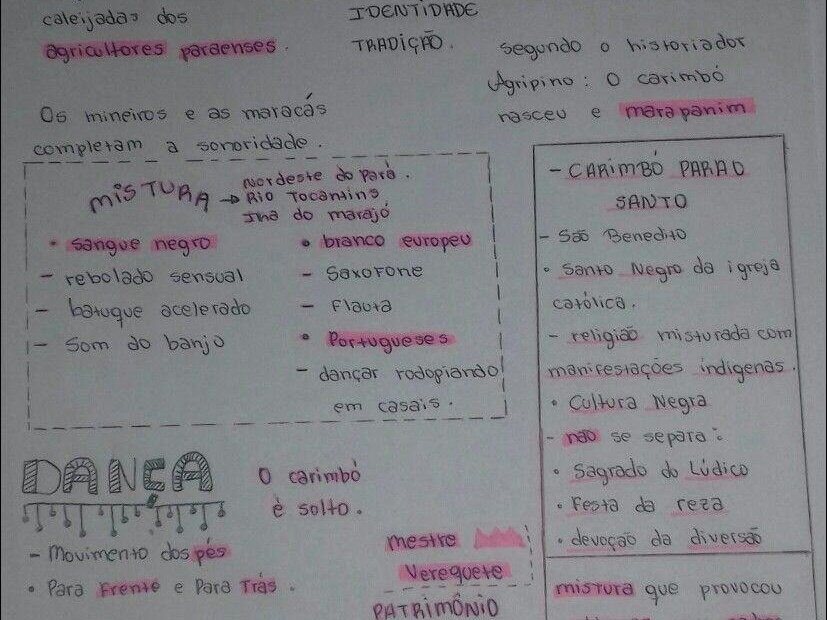 caleijadas dos
agricultores paraenses.
IDENTIDADE
TRADIÇÃO.
segundo o historiador
Agripino: O carimbó
nasceu e marapanim
Os mineiros e as maracás
completam a sonoridade.
MISTURA → Nordeste do Pará.
Rio Tocantins
Ilha do marajó
• sangue negro
- rebolado sensual
- batuque acelerado
- Som do banjo
• branco europeu
- Saxofone
- Flauta
• Portugueses
- dançar rodopiando
em casais.
- CARIMBÓ PARA O
SANTO
- São Benedito
• Santo Negro da igreja
católica.
- religião misturada com
manifestações indígenas.
• Cultura Negra
- não se separa:
• Sagrado do Lúdico
• Festa da reza
• devoção da diversão
mistura que provocou
DANÇA
- Movimento dos pés
• Para Frente e Para Trás.
O carimbó
é solto.
mestre
Verequete
PATRIMÔNIO